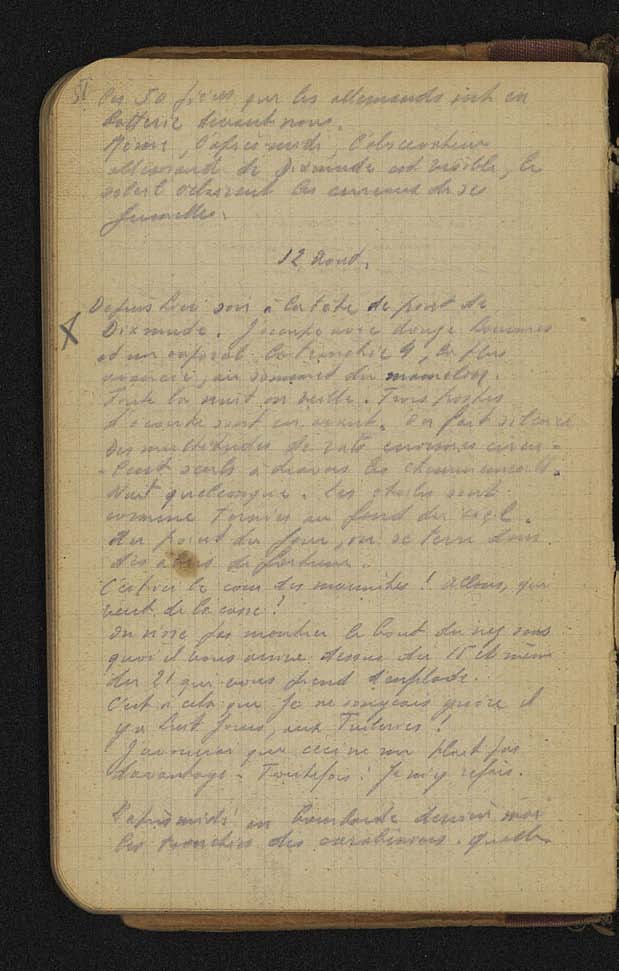 que les allemands ont en
batterie devant nous.
Même, l'après-midi, l'observateur
allemand de Dixmude est visible, le
soleil éclairant les carreaux de ses
jumelles.
12 Aout.
Depuis hier soir à la tête de pont de
Dixmude. J'occupe avec douze hommes
et un caporal la tranchée 9, la plus
avancée, au sommet du mamelon.
Toute la nuit on veille. Trois postes
d'écoute sont en avant. On fait silence
Des multitudes de rats énormes circu-
- lent seuls à travers les cheminements.
Nuit quelconque. Les étoiles sont
comme ternies au fond du ciel.
Au point du jour, on se terre dans
des abris de fortune.
C'est ici le coin des marmites ! Allons, qui
veut de la casse !
On n'ose pas montrer le bout du nez sans
quoi il vous arrive dessus du 15 et même
du 21 qui vous fend
C'est à cela que je ne songeais guère il
y a huit jours, aux Tuileries !
J'avouerai que ceci ne me plait pas
davantage. Toutefois ! Je m'y refais.
L'après midi on bombarde derrière moi
les tranchées des carabiniers. Quelle